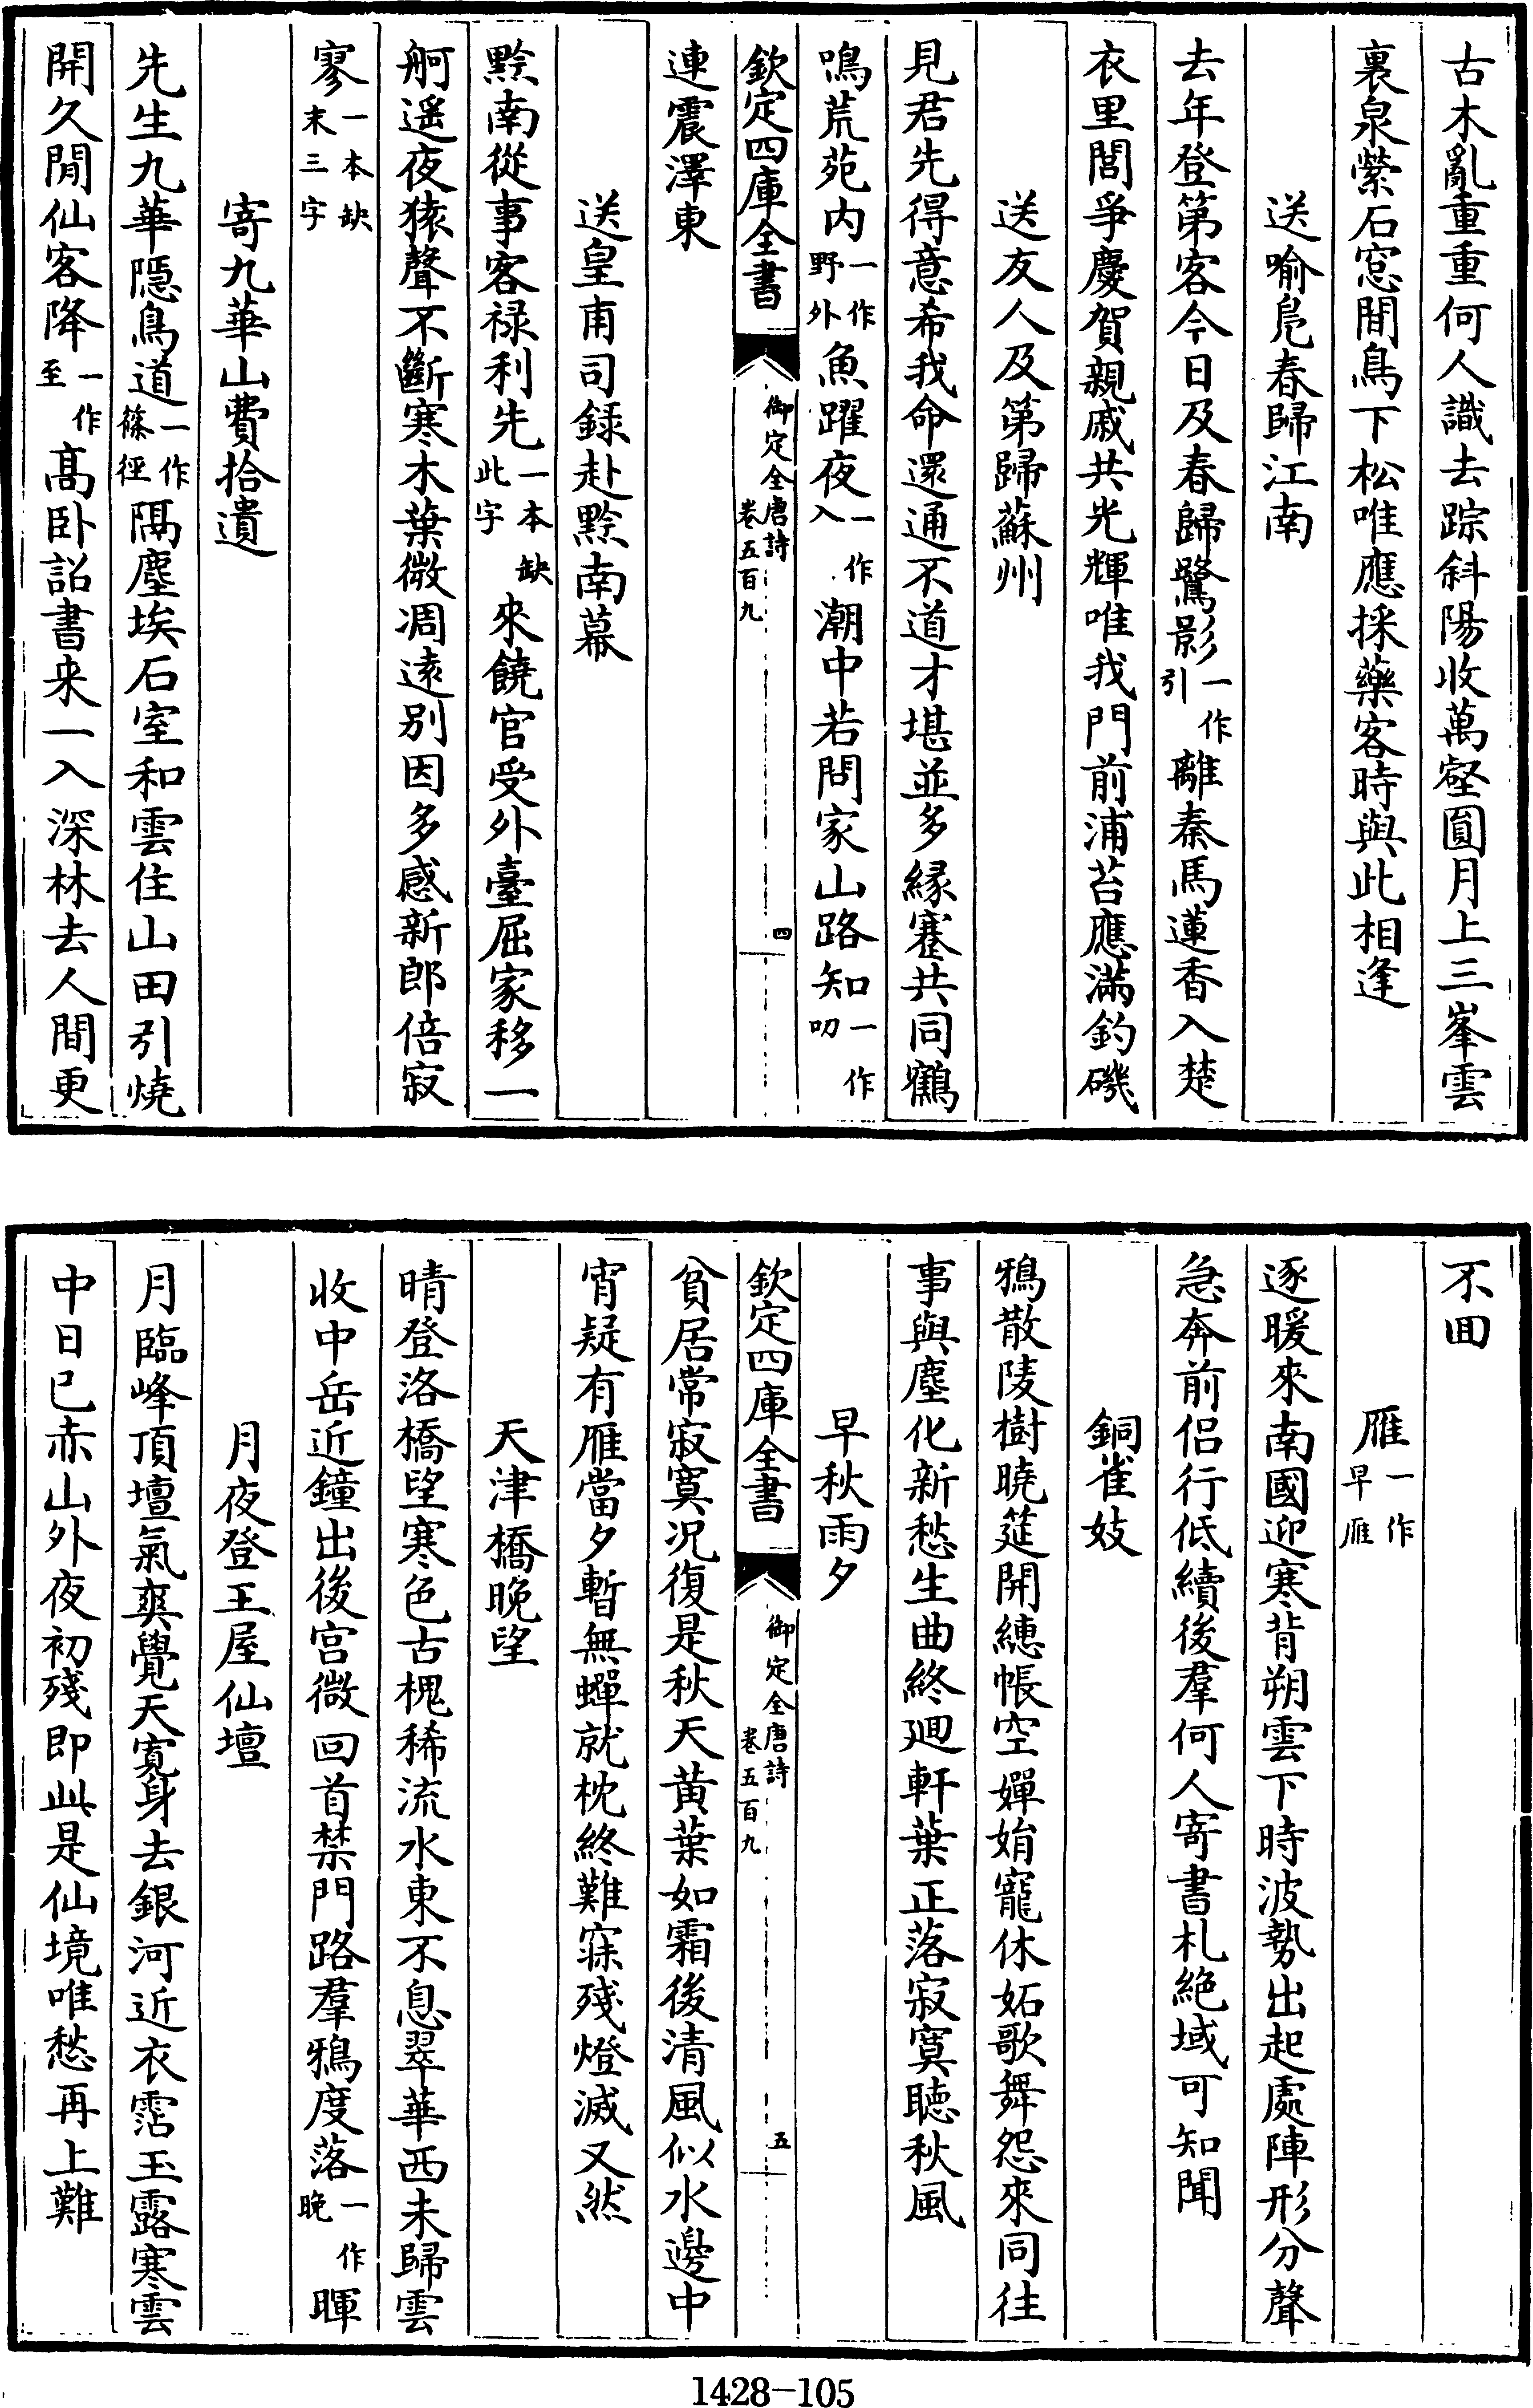 古木亂重重何人識去踪斜陽收萬壑圓月上三峯雲
裏泉縈石窓間鳥下松唯應採藥客時與此相逢
送喻鳬春歸江南
去年登第客今日及春歸鷺影一作引離秦馬蓮香入楚
衣里閭爭慶賀親戚共光輝唯我門前浦苔應滿釣磯
送友人及第歸蘇州
見君先得意希我命還通不道才堪並多縁蹇共同鶴
鳴荒苑内一作野外魚躍夜一作入潮中若問家山路知一作叨
欽定四庫全書
御定全唐詩
卷五百九
四
連震澤東
送皇甫司録赴黔南幕
黔南從事客禄利先一本缺此字來饒官受外臺屈家移一
舸遥夜猿聲不斷寒木葉微凋逺别因多感新郎倍寂
寥一本缺末三字
寄九華山費拾遺
先生九華隱鳥道一作篠徑隔塵埃石室和雲住山田引燒
開久閒仙客降一作至髙卧詔書来一入深林去人間更
不囬
雁一作早雁
逐暖來南國迎寒背朔雲下時波勢出起處陣形分聲
急奔前侣行低續後羣何人寄書札絶域可知聞
銅雀妓
鴉散陵樹曉筵開繐帳空嬋娟寵休妬歌舞怨來同往
事與塵化新愁生曲終廻軒葉正落寂寞聽秋風
早秋雨夕
欽定四庫全書
御定全唐詩
卷五百九
五
貧居常寂寞况復是秋天黄葉如霜後清風似水邊中
宵疑有雁當夕暫無蟬就枕終難寐殘燈滅又然
天津橋晚望
晴登洛橋望寒色古槐稀流水東不息翠華西未歸雲
收中岳近鐘出後宫微回首禁門路羣鴉度落一作晚暉
月夜登王屋仙壇
月臨峰頂壇氣爽覺天寛身去銀河近衣霑玉露寒雲
中日已赤山外夜初殘即此是仙境唯愁再上難
1428-105